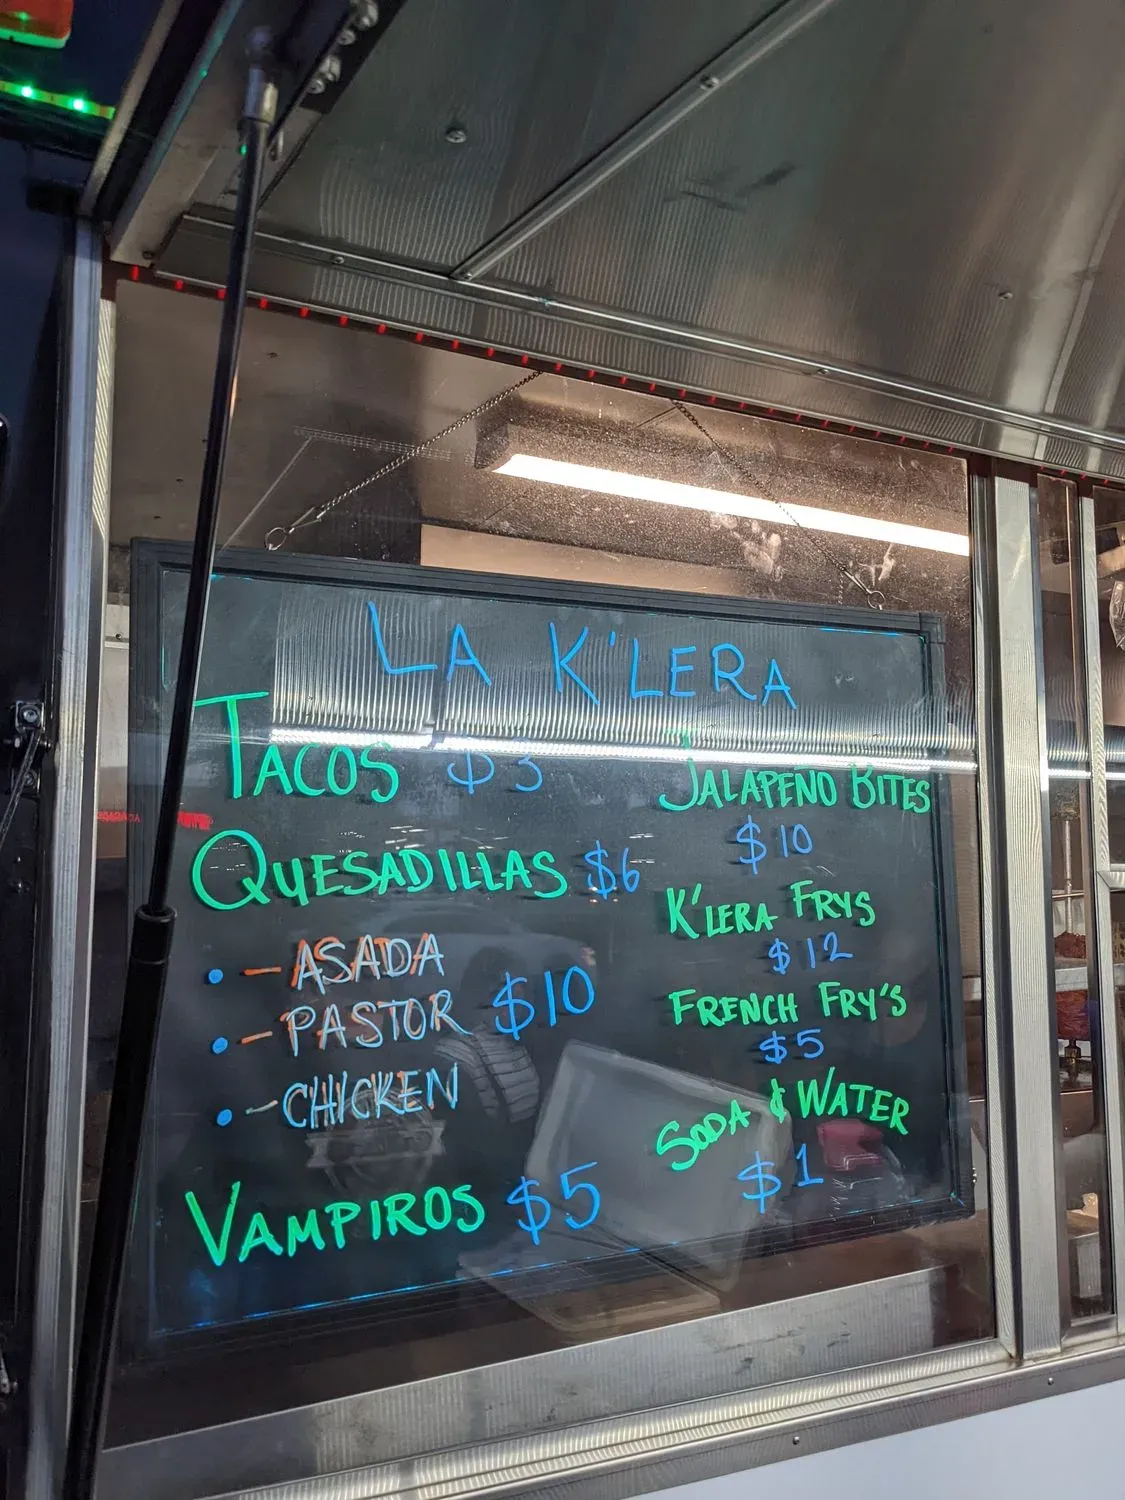 LA K'LERA
TACOS $3
QUESADILLAS $6
- ASADA
- PASTOR $10
- CHICKEN
VAMPIROS $5
JALAPEÑO BITES
$10
K'LERA FRYS
$12
FRENCH FRY'S
$5
SODA & WATER
$1